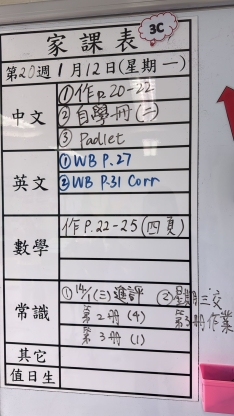 家課表
3C
第20週 1月12日(星期一)
中文
①作p.20-22
②自學冊(二)
③Padlet
英文
①WB P.27
②WB P.31 Corr
數學
作P.22-25(四頁)
常識
①14/1(三)進評 ②星期三交
第2冊(4) 第3冊作業
第3冊(1)
其它
值日生